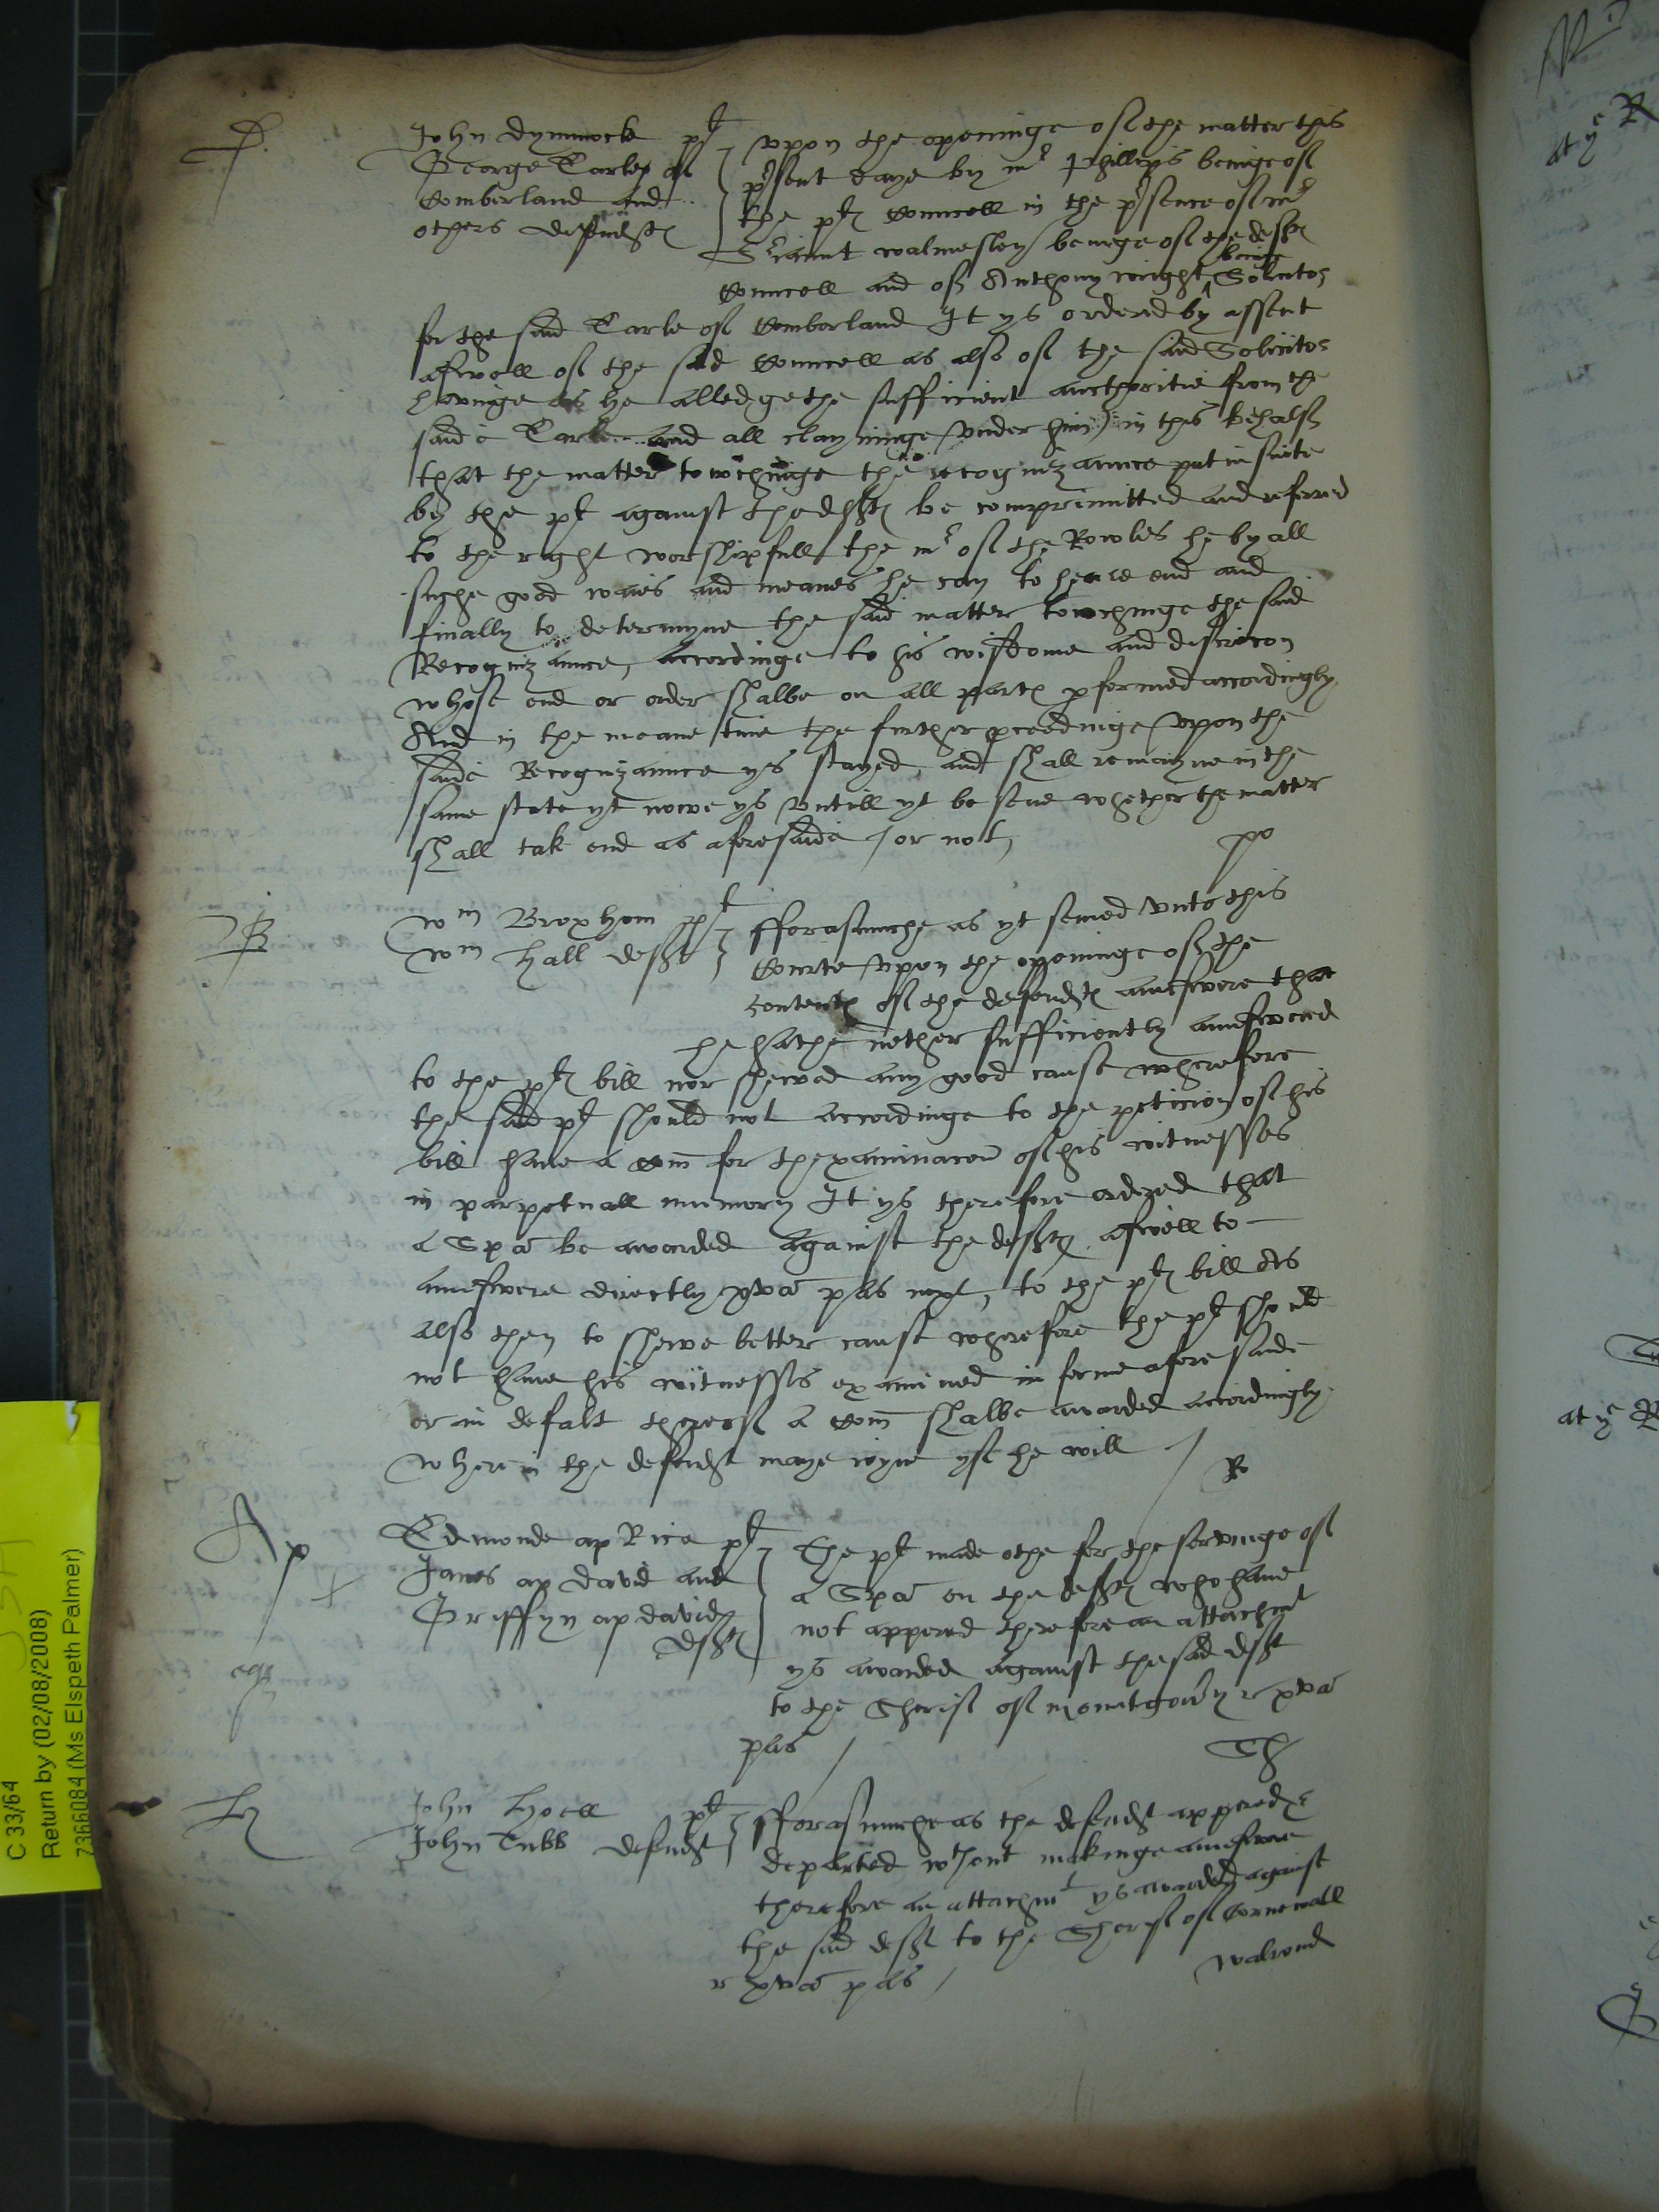 D.
John Dymmocke pt
George Earle of
Comberland and
others defendtes
vpon the openinge of the matter this
present daye by mr Phillipps beinge of
the ptes Councell in the presence of mr
Sriaunt walmesley beinge of the deftes
being
Councell and of Anthony wright Solicitor
for the said Earle of Comberland It ys ordered by assent
aswell of the said Councell as also of the said Solicitor
havinge as he alledgethe sufficient aucthoritie from the
saide Earle and all clayminge vnder him in this behalf
that the matter towchinge the recognizaunce put in suite
by the pt against the deftes be comprimitted and referred
to the right worshipfull the mr of the Rowles he by all
suche good waies and meanes he can to heare end and
finally to determyne the said matter towchinge the said
Recognizaunce, accordinge to his wisdome and discrecon
whose end or order shalbe on all partes performed accordingly
And in the meane time the further proceedinge vpon the
saide Recognizaunce ys stayed, and shall remayne in the
same state yt nowe ys vntill yt be sene whether the matter
shall tak end as aforesaide / or not,
po
B
wm Broxhom pt
wm Hall deft
fforasmuche as yt semed vnto this
Courte vpon the openinge of the
contentes of the defendtes aunswere that
he hathe nether sufficiently aunswered
to the ptes bill nor shewed any good cause wherefore
the said pt should not accordinge to the peticion of his
bill have a Com for thexaminacon of his witnesses
in parpetuall memory It ys therefore ordered that
a Spa be awarded against the deftes aswell to
aunswere directly xva pas next, to the ptes bill As
also then to shewe better cause wherefore the pt should
not have his witnesses examined in forme aforesaide
or in defalt thereof a Com shalbe awarded accordingly
wherein the defendt maye ioyne yf he will /
Ro
Ap
Edmonde ap Rice pt
James ap david and
Griffyn ap david
deftes
The pt made othe for the servinge of
a Spa on the deftes who have
not appered therefore an attachmt
ys awarded against the said deft
to the Sherif of mountgomry r xva
pas /
Th
H
John Hoell pt
John Tubb defendt
fforasmuche as the defendt appered &
departed wthout makinge aunswere
therefore an attachmt ys awarded against
the said deft to the Sherif of Cornewall
r xva pas /
walrond
at ye R
at ye R
C 33/64
Return by (02/08/2008)
7366084 (Ms Elspeth Palmer)